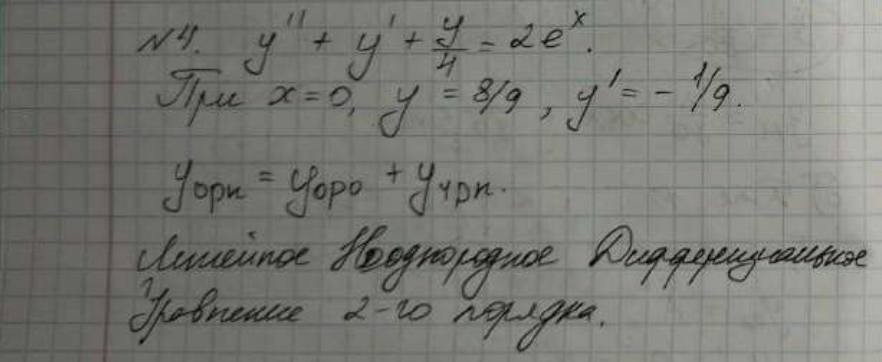 №4. y'' + y' + y/4 = 2e^x.
При x=0, y = 8/9, y' = - 1/9.
y_орн = y_оро + y_чрн.
Линейное Неоднородное Дифференциальное
Уравнение 2-го порядка.